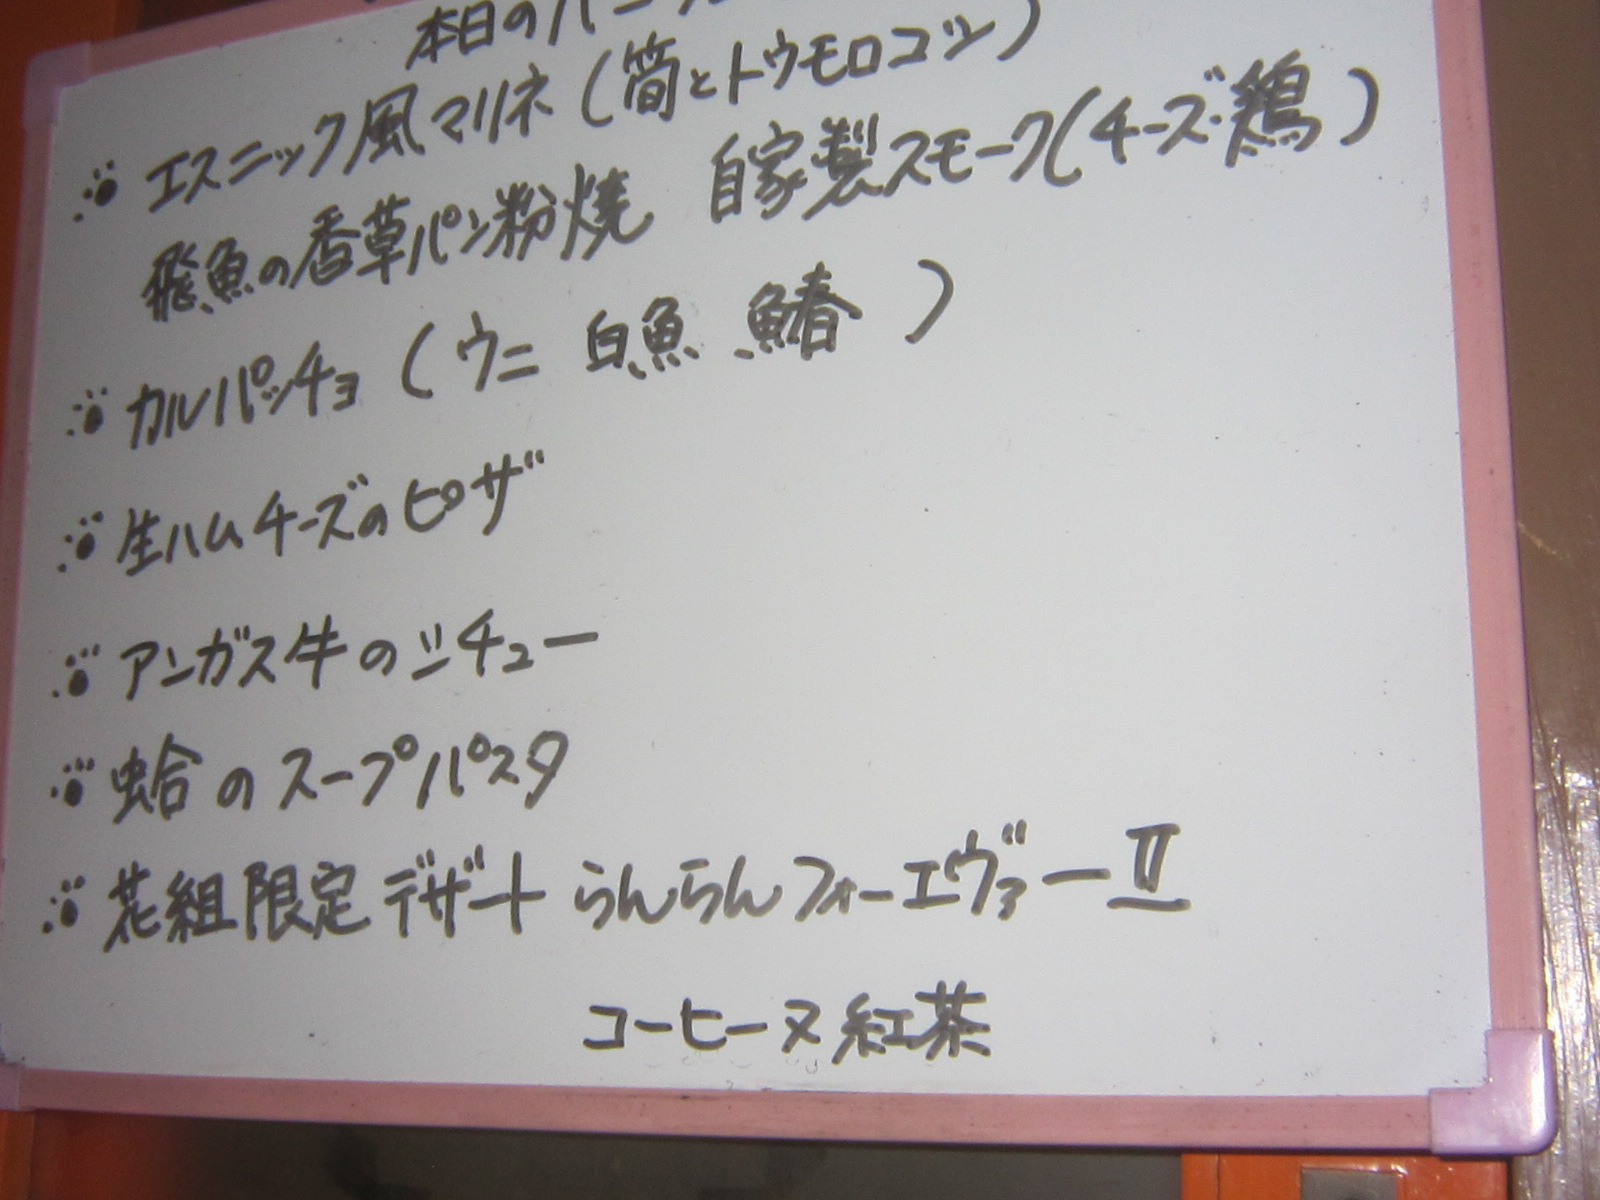 本日のパー
エスニック風マリネ(筒とトウモロコシ)
飛魚の香草パン粉焼 自家製スモーク(チーズ・鶏)
カルパッチョ(ウニ 白魚 鰆)
生ハムチーズのピザ
アンガス牛のシチュー
蛤のスープパスタ
花組限定デザート らんらんフォーエヴァーⅡ
コーヒー又紅茶